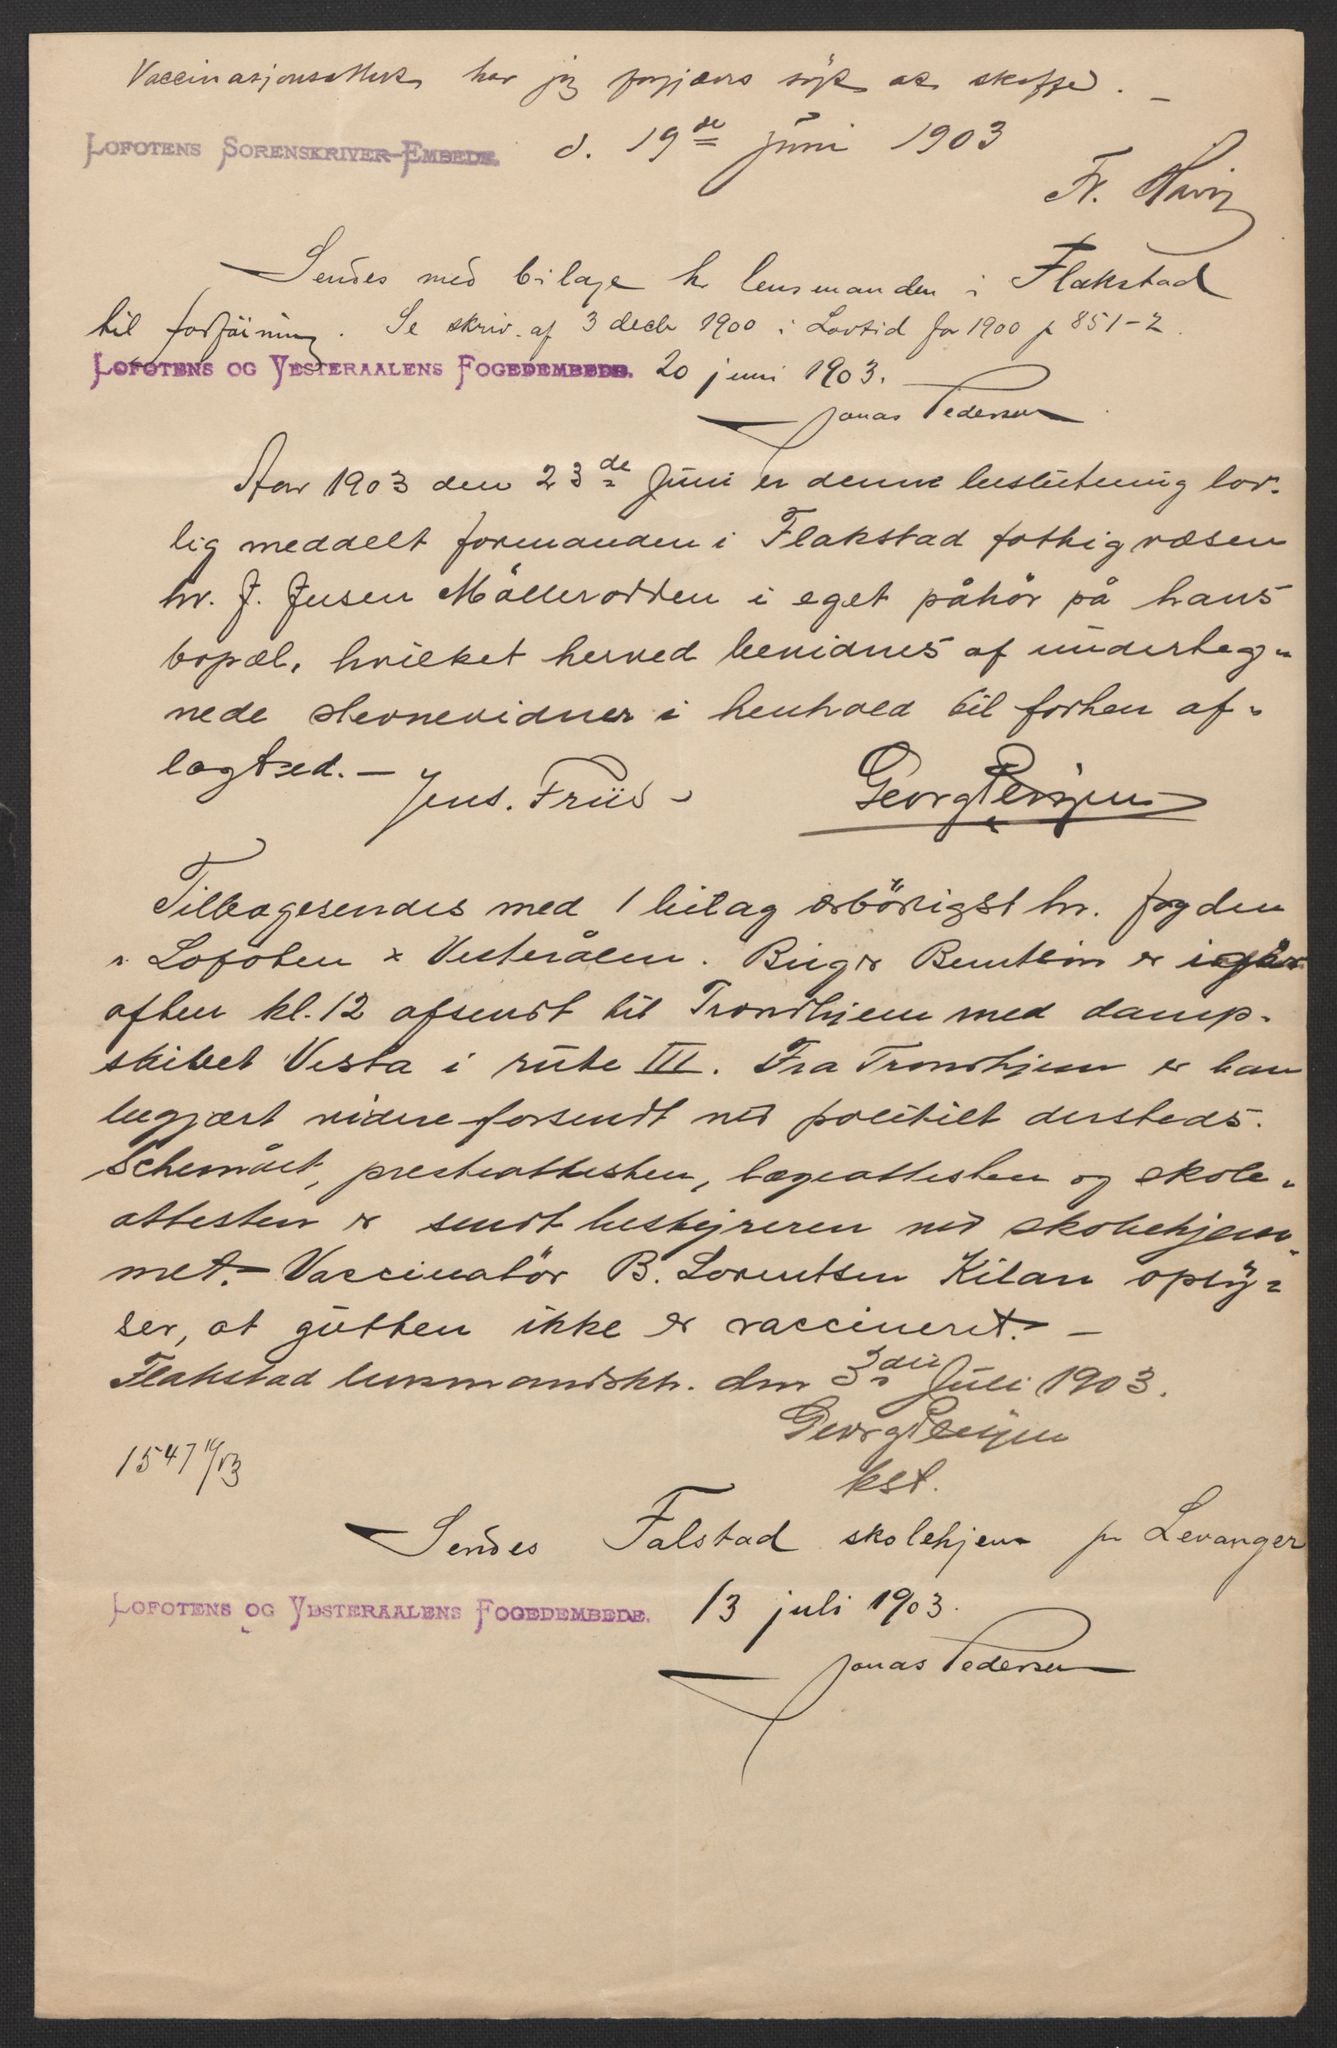 Vaccinasjonsattest har jeg forgjæves søgt at skaffe. —
LOFOTENS SORENSKRIVER-EMBEDE. d. 19de Juni 1903
Fr.
Sendes med bilage hr lensmanden i Flakstad
til forføining. Se skriv. af 3 decbr 1900 i Lovtid for 1900 p 851-2.
LOFOTENS OG VESTERAALENS FOGEDEMBEDE. 20 juni 1903.
Jonas Pedersen
Aar 1903 den 23de Juni er denne beslutning lov-
lig meddelt formanden i Flakstad fattigvæsen
hr. J. Jusen Möllerodden i eget påhör på hans
bopæl, hvilket herved bevidnes af underteg-
nede stevnevidner i henhold til forhen af-
lagt ed. —
Jens. Friis Georg
Tilbagesendes med 1 bilag ærbödigst hr. fogden
i Lofoten & Vesterålen. Birger Berntsen er igår
aften kl. 12 afsendt til Trondhjem med damp-
skibet Vesta i rute III. Fra Trondhjem er han
begjært videre forsendt ved politiet dersteds.
Schemået, presteattesten, lægeattesten og skole-
attesten er sendt bestyreren ved skolehjem-
met. — Vaccinatör B. Lorentsen Kilan oply-
ser, at gutten ikke er vaccineret. —
Flakstad lensmandskt. den 3die Juli 1903.
Georg
kst.
1547 /03
Sendes Falstad skolehjem pr Levanger
LOFOTENS OG VESTERAALENS FOGEDEMBEDE. 13 juli 1903.
Jonas Pedersen